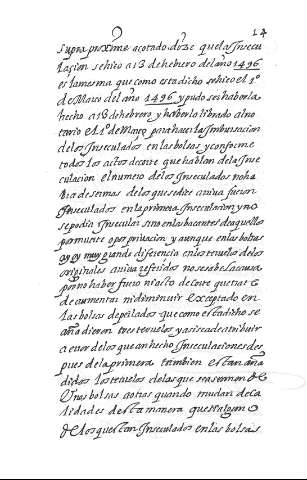 14
supra proxime acotado dize que la Insecu
lacion se hizo a 13 de hebrero del año 1496
es la mesma que como esta dicho se hizo el 1º
de Março del año 1496 y pudo ser haberla
hecho a 13 de hebrero y haberla librado al no
tario el 1º de Março para hacer la Imbursacion
de los Inseculados en las bolsas y conforme
todos los actos de corte que hablan de la Inse
culacion el numero de los Inseculados no ha
bia de ser mas de los que se dice arriva fueron
Inseculados en la primera Inseculacion y no
se podia Insecular sino en las bacantes de aquellos
por muerte o por privacion y aunque en las bolsas
ay oy muy grande diferencia en los teruelos de los
originales arriva referidos no se sabe la causa
por no haber fuero ni acto de Corte que trate
de aumentar ni diminuir exceptado en
las bolsas de pilados que como esta dicho se
añadieron tres teruelos y asi se a de atribuir
a error de los que an hecho Inseculaciones des
pues de la primera tambien estan aña
didos los teruelos de las que se asermon de
Unas bolsas a otras quando mudan de ca
lidades de esta manera que
de los que estan Inseculados en las bolsas